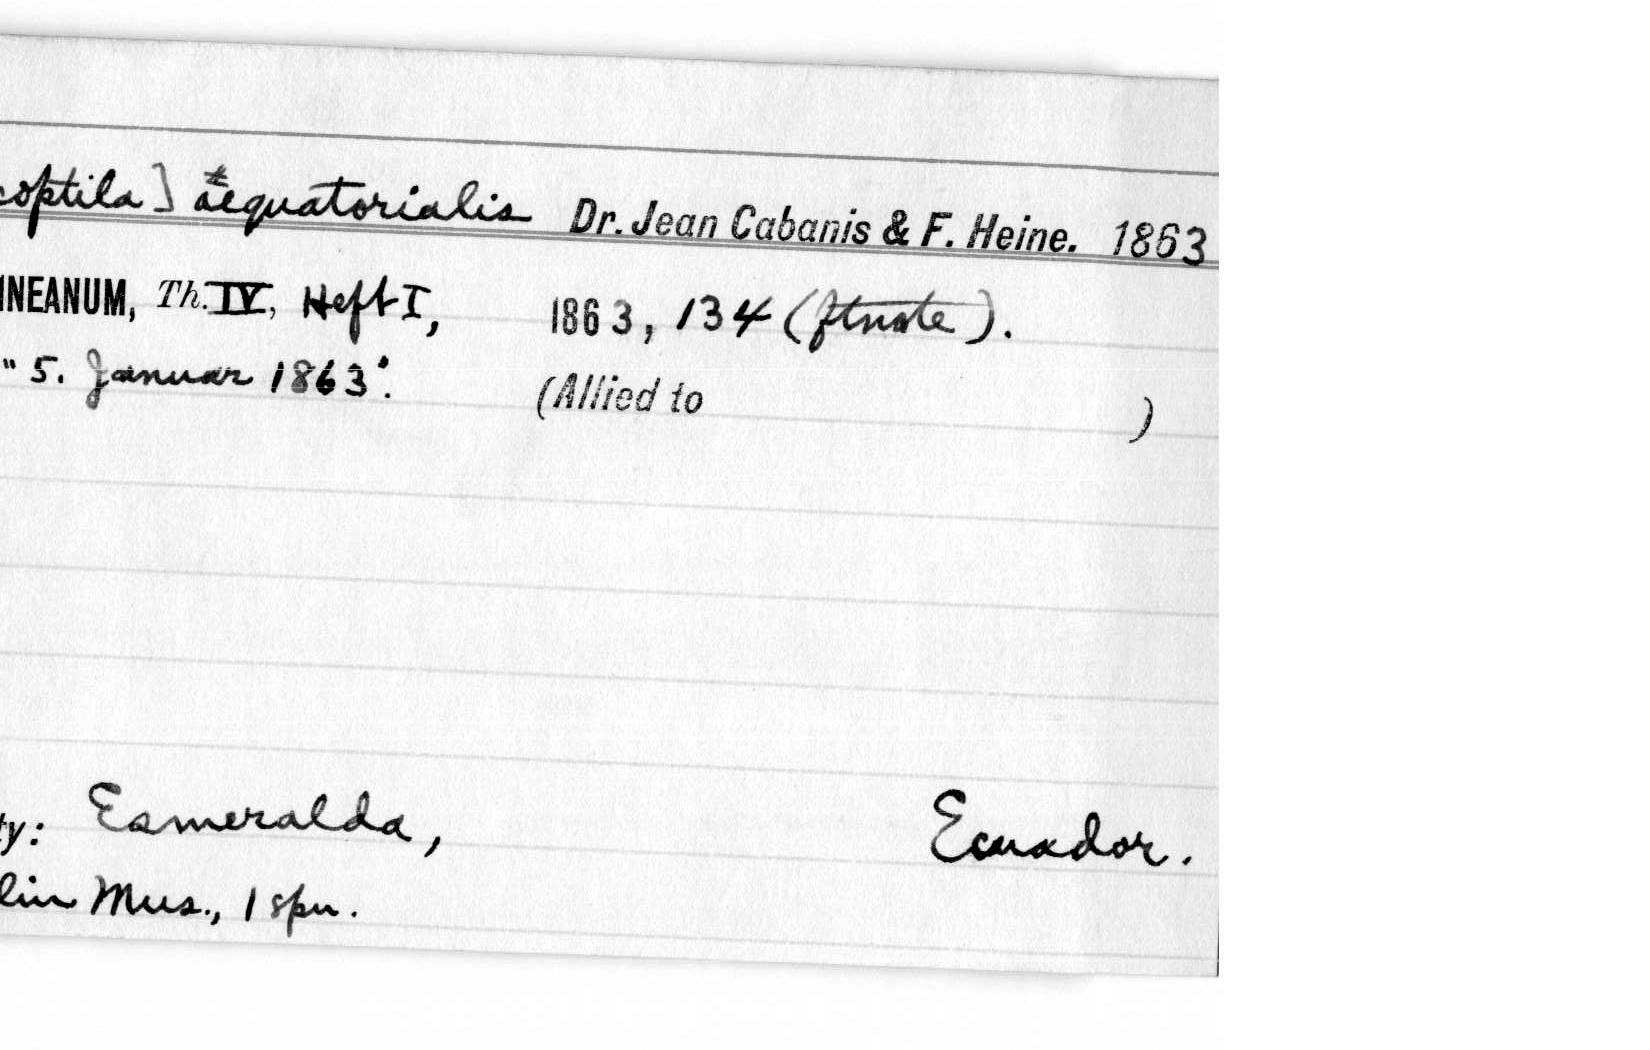 coptila] aequatorialis Dr. Jean Cabanis & F. Heine. 1863
INEANUM, Th. IV, Heft I, 1863, 134 (ftnote).
"5. Januar 1863". (Allied to )
ty: Esmeralda, Ecuador.
lin Mus., 1 spn.